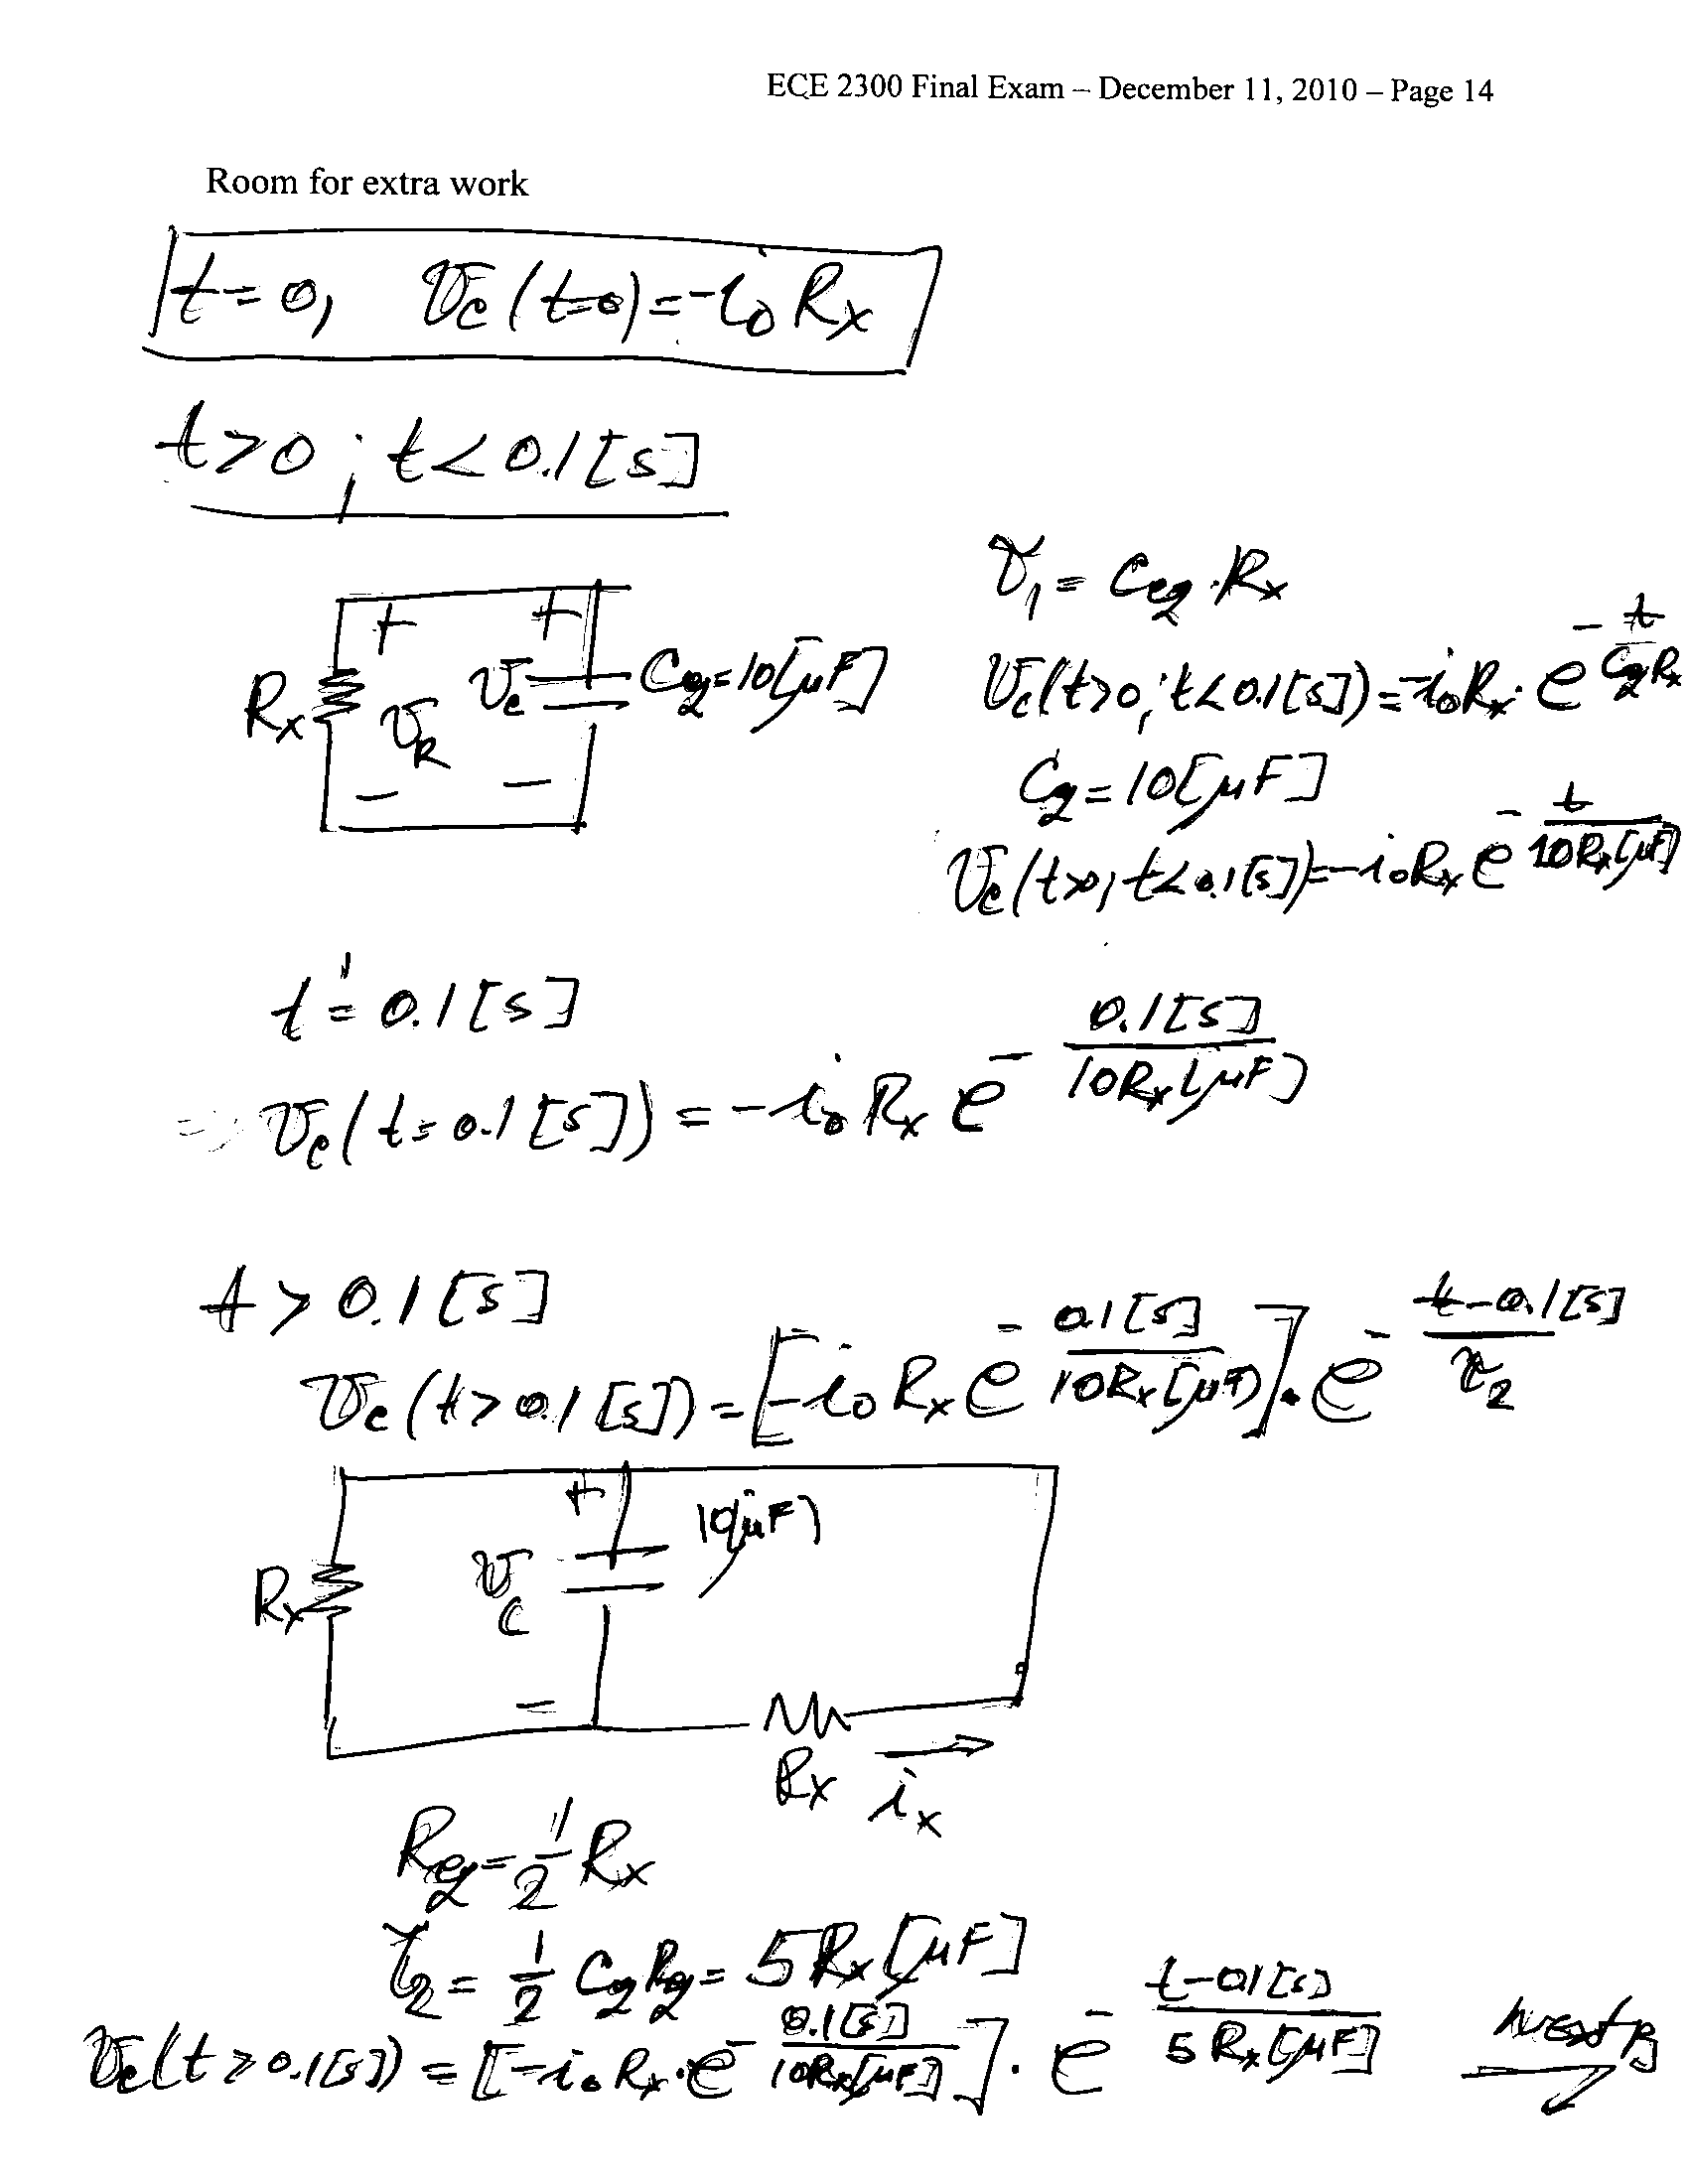 ECE 2300 Final Exam – December 11, 2010 – Page 14
Room for extra work
t=0, v_c(t=0)=-i_0 R_x
t>0; t<0.1[s]
τ_1 = C_eq·R_x
v_c(t>0; t<0.1[s])=-i_0R_x·e^{-t/(C_eq R_x)}
R_x + v_R - + v_c - C_eq=10[μF]
C_eq=10[μF]
v_c(t>0; t<0.1[s])=-i_0R_x e^{-t/(10R_x[μF])}
t=0.1[s]
=> v_c(t=0.1[s]) = -i_0 R_x e^{-0.1[s]/(10R_x[μF])}
t>0.1[s]
v_c(t>0.1[s])=[-i_0 R_x e^{-0.1[s]/(10R_x[μF])}]·e^{-(t-0.1[s])/τ_2}
+ 10[μF]
R_x v_c
-
R_x i_x
R_eq=1/2 R_x
τ_2 = 1/2 C_eq R_eq = 5R_x[μF]
v_c(t≥0.1[s]) = [-i_0 R_x·e^{-0.1[s]/(10R_x[μF])}]·e^{-(t-0.1[s])/(5R_x[μF])} next pg